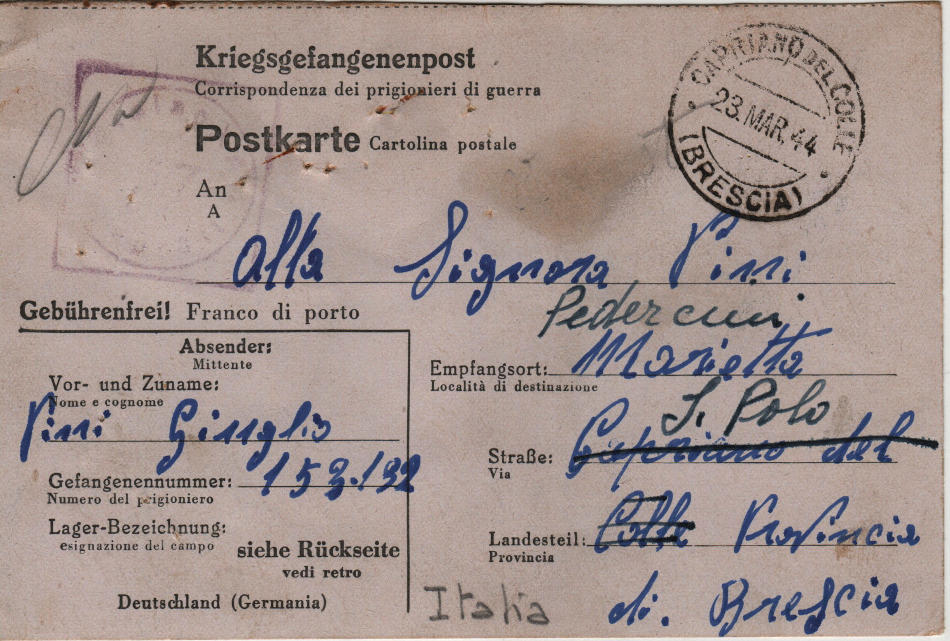 Kriegsgefangenenpost
Corrispondenza dei prigionieri di guerra
Postkarte Cartolina postale
CAPRIANO DEL COLLE
23. MAR. 44
(BRESCIA)
An
A
Alla Signora Pini
Gebührenfrei! Franco di porto
Pedercini
Absender:
Mittente
Vor- und Zuname:
Nome e cognome
Pini Giuglio
Gefangenennummer: 153.192
Numero del prigioniero
Lager-Bezeichnung:
esignazione del campo
siehe Rückseite
vedi retro
Deutschland (Germania)
Empfangsort: Marietta
Località di destinazione
S. Polo
Straße: Capriano del
Via
Landesteil: Colle Provincia
Provincia
Italia
di. Brescia